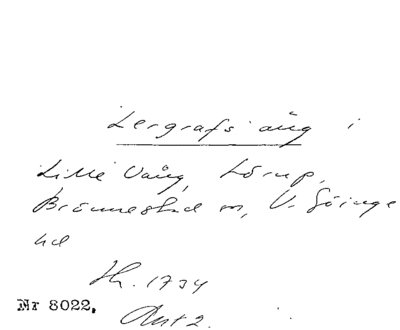 Lergrafs äng i
Lille Vång, Lörup,
Brönnestad sn, V. Göinge
hd
Hs. 1734
Ant 2.
Nr 8022.